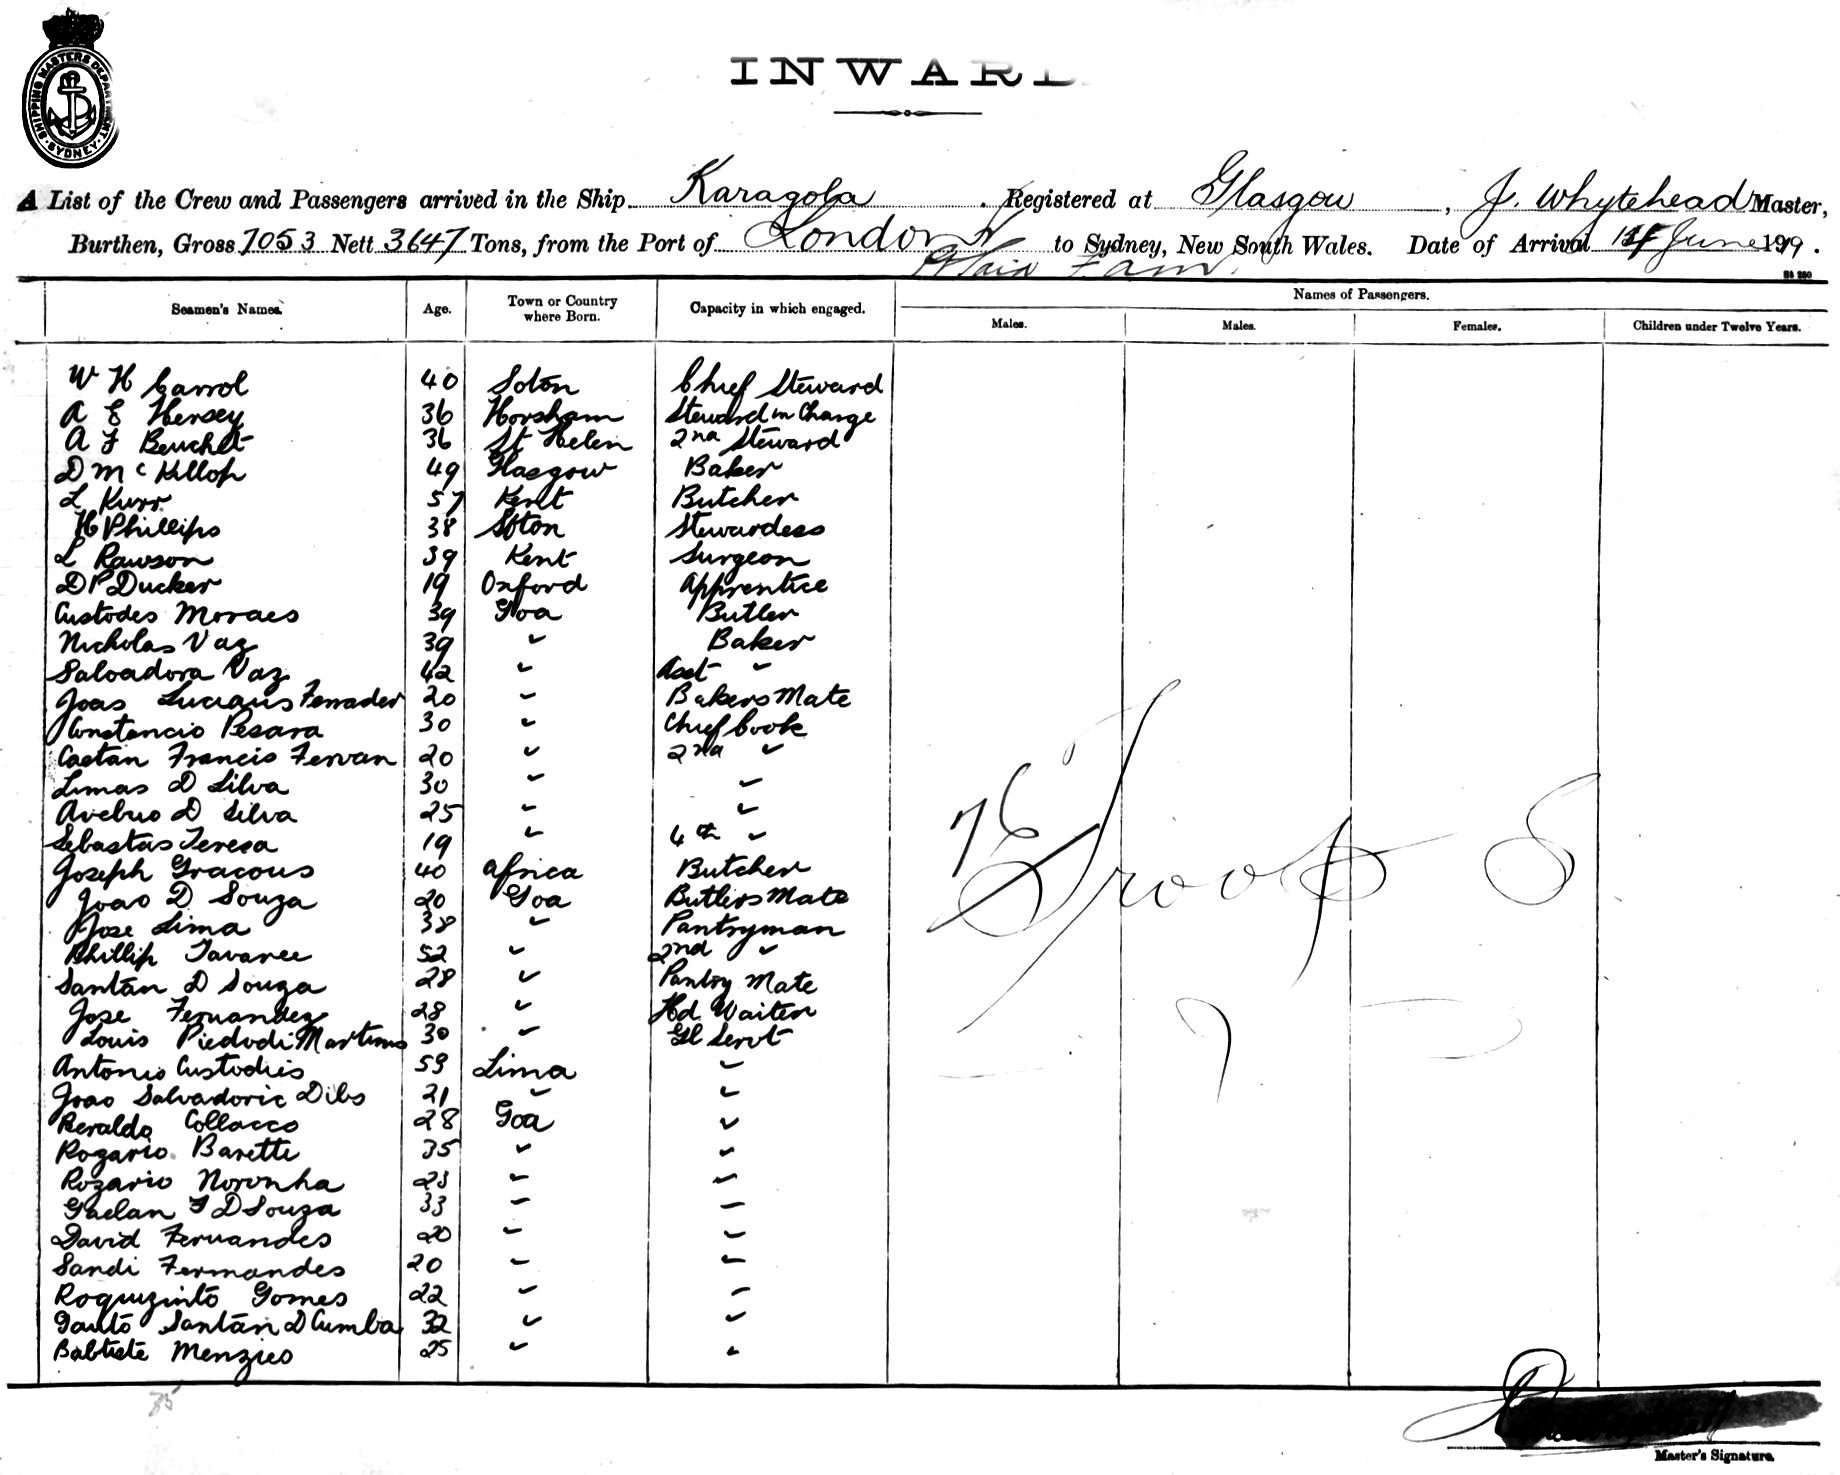 SHIPPING MASTERS DEPARTMENT
SYDNEY
INWARD
A List of the Crew and Passengers arrived in the Ship Karagola. Registered at Glasgow, J. Whytehead Master,
Burthen, Gross 7053 Nett 3647 Tons, from the Port of London to Sydney, New South Wales. Date of Arrival June 1919.
Seamen's Names. Age. Town or Country where Born. Capacity in which engaged. Names of Passengers.
Males. Males. Females. Children under Twelve Years.
W H Carrol 40 Soton Chief Steward
A E Hersey 36 Horsham Steward in Charge
A F Beuchet 36 St Helen 2nd Steward
D McKillop 49 Glasgow Baker
L Kurr 57 Kent Butcher
H Phillips 38 Soton Stewardess
L Rawson 39 Kent Surgeon
D P Ducker 19 Oxford Apprentice
Custodes Moraes 39 Goa Butler
Nicholas Vaz 39 " Baker
Salvadora Vaz 42 " Asst "
Joas Luciaus 20 " Bakers Mate
Constancio Pesara 30 " Chief Cook
Caetan Francis Fervan 20 " 2nd "
Limas D Silva 30 " "
Avelino D Silva 25 " "
Sebastas Teresa 19 " 4th "
Joseph Gracous 40 Africa Butcher
Joao D Souza 20 Goa Butlers Mate
Jose Lima 38 " Pantryman
Phillip Tavares 52 " 2nd "
Santan D Souza 28 " Pantry Mate
Jose Fernandez 28 " Hd Waiter
Louis Piedodi Martins 30 " Gl Servt
Antonio Custodies 59 Lima "
Joao Salvadoric Dibs 21 " "
Reraldo Collacco 28 Goa "
Rogario Barette 35 " "
Rozario Noronha 23 " "
Gaelan F D Souza 33 " "
David Fernandes 20 " "
Sandi Fermandes 20 " "
Roquizinto Gomes 22 " "
Santan D Cumba 32 " "
Babtiste Menzies 25 " "
76 Troops
35
Master's Signature.